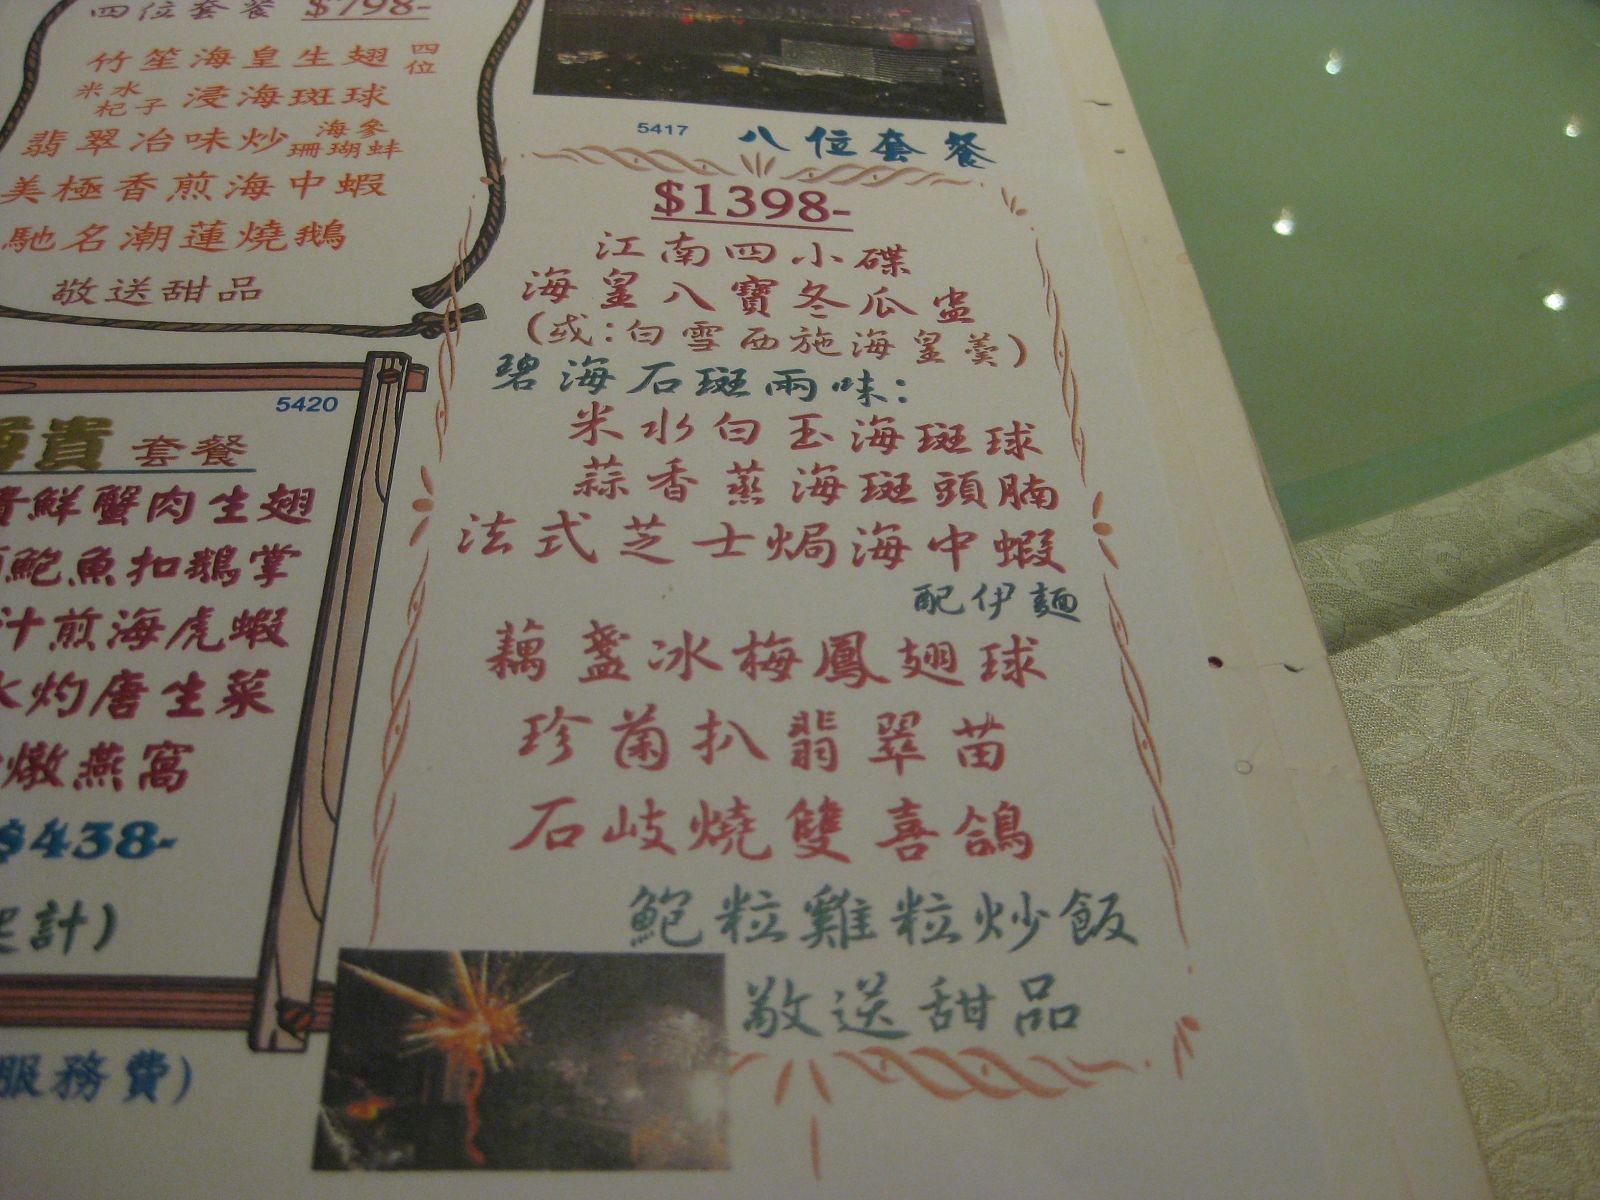 四位套餐 $798-
竹笙海皇生翅 四位
米水杞子浸海斑球
翡翠冶味炒海參珊瑚蚌
美極香煎海中蝦
馳名潮蓮燒鵝
敬送甜品
5420
貴 套餐
鮮蟹肉生翅
鮑魚扣鵝掌
汁煎海虎蝦
水灼唐生菜
燉燕窩
$438-
計)
服務費)
5417 八位套餐
$1398-
江南四小碟
海皇八寶冬瓜盅
(或:白雪西施海皇羹)
碧海石斑兩味:
米水白玉海斑球
蒜香蒸海斑頭腩
法式芝士焗海中蝦
配伊麵
藕盞冰梅鳳翅球
珍菌扒翡翠苗
石岐燒雙喜鴿
鮑粒雞粒炒飯
敬送甜品